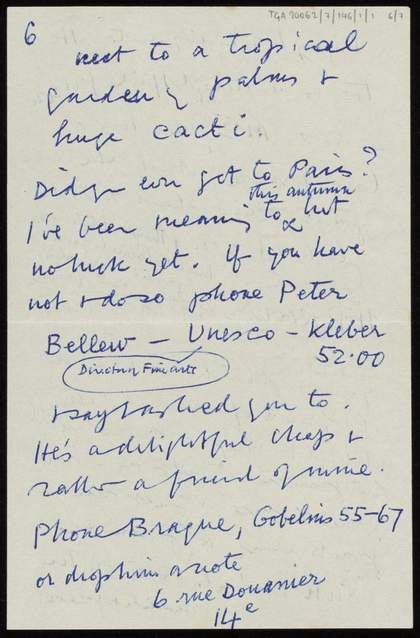 TGA 20062/7/146/1/1 6/7
6
next to a tropical
garden of palms &
huge cacti.
Did you ever get to Paris?
this autumn
I've been meaning to but
no luck yet. If you have
not & do so phone Peter
Bellew — Unesco — Kleber
52.00
Director of Fine arts
& say I asked you to.
He's a delightful chap &
rather a friend of mine.
Phone Braque, Gobelins 55-67
or drop him a note
6 rue Douanier
14e